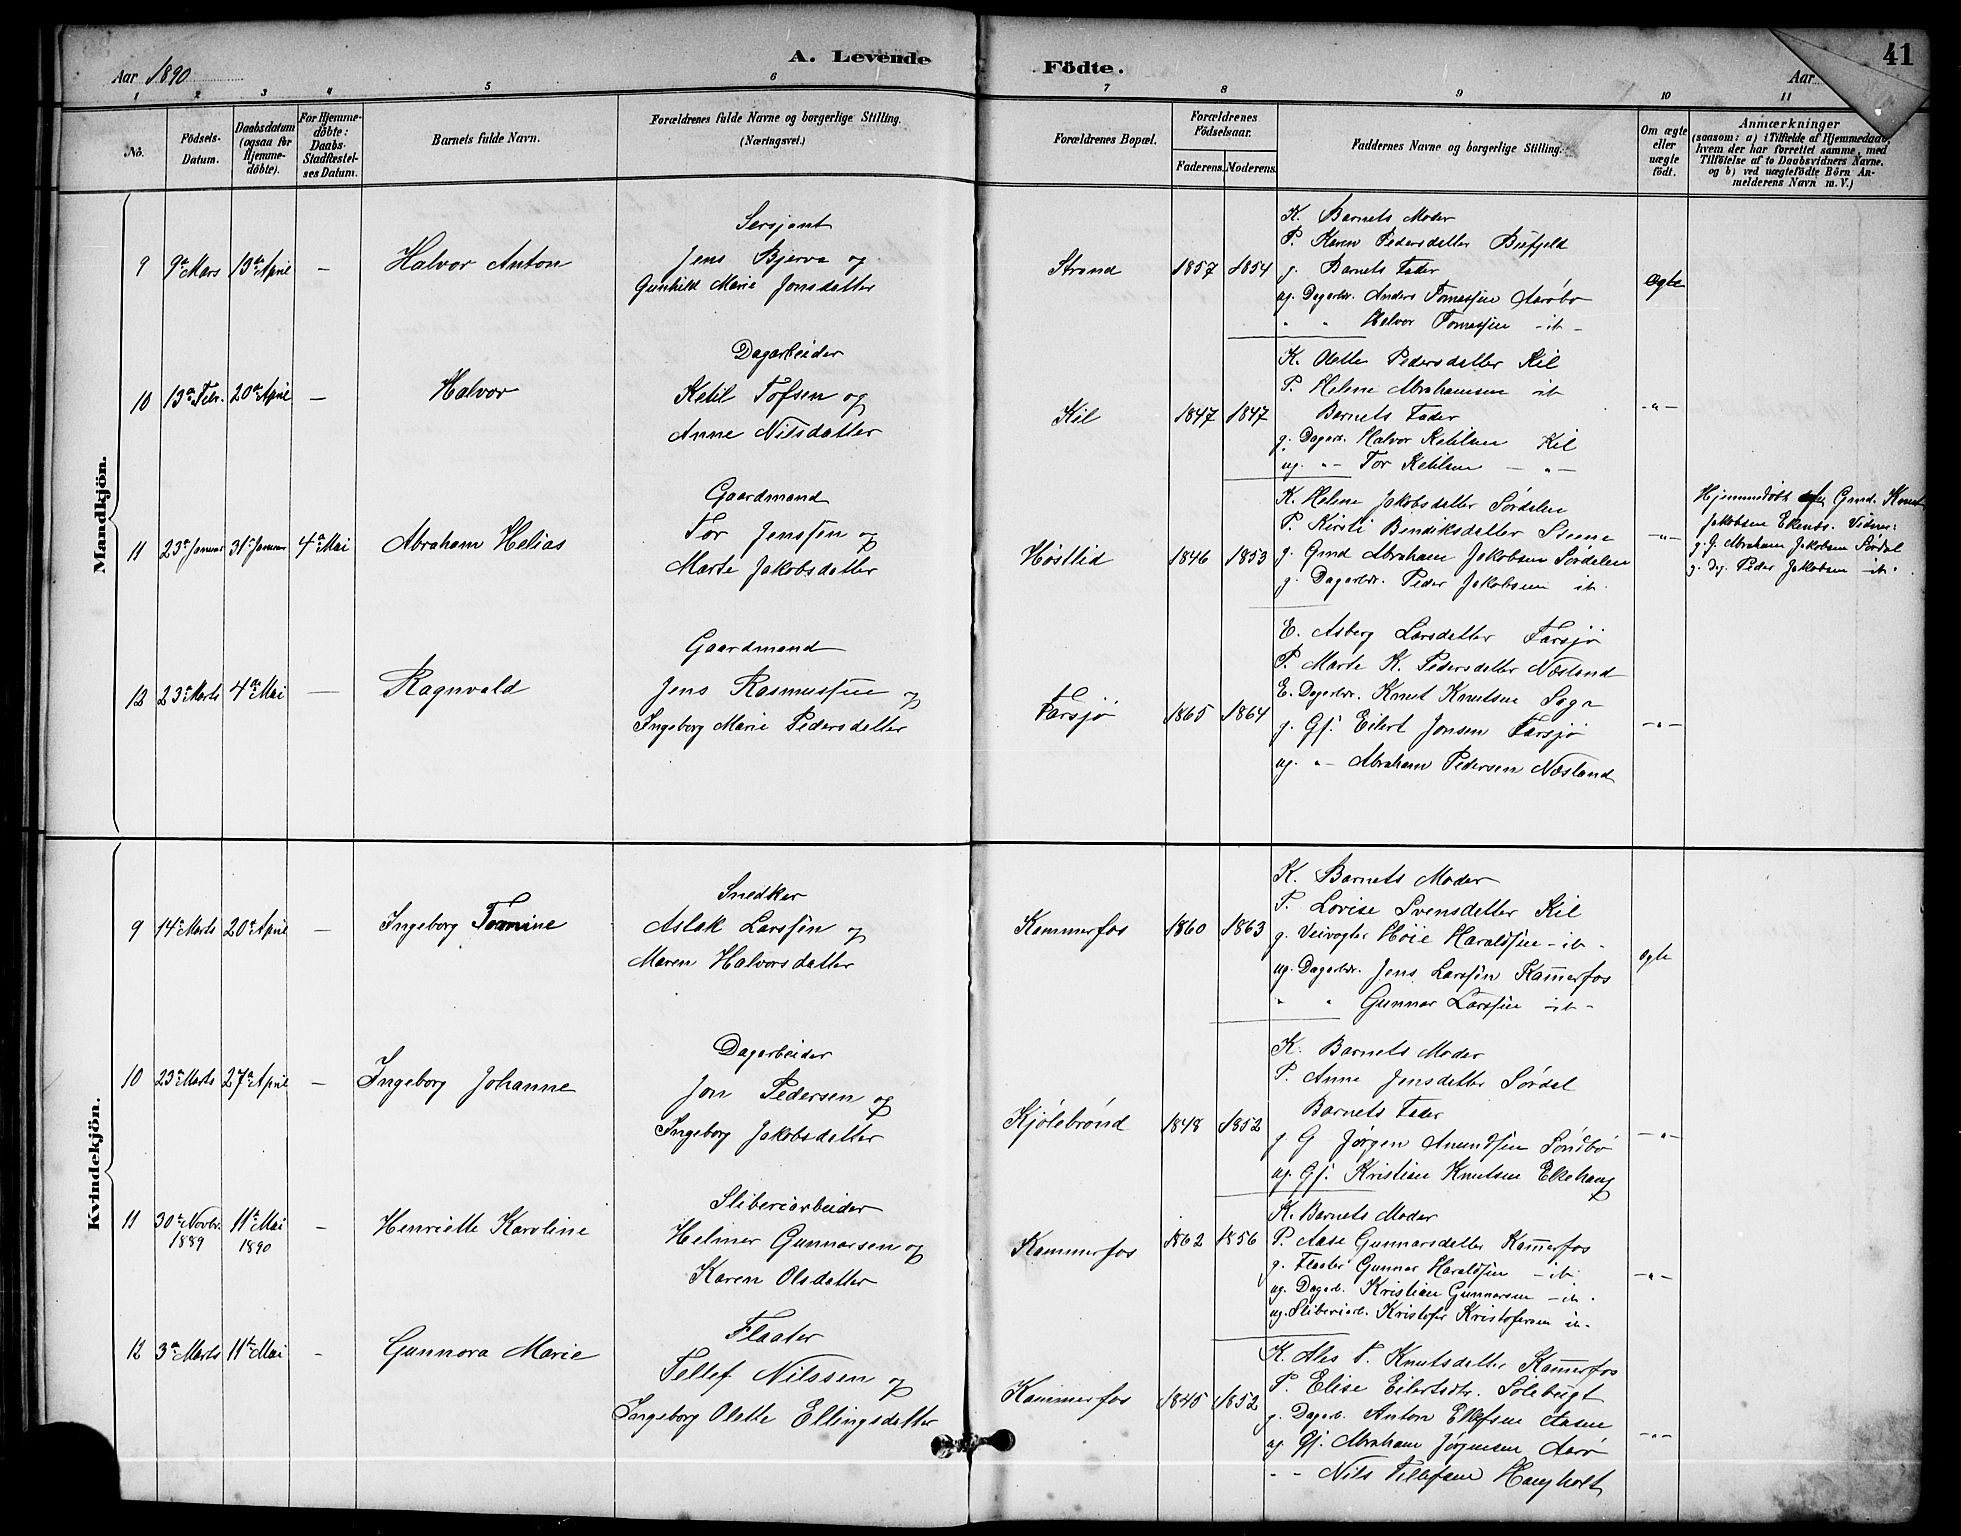 A. Levende
Födte.
41
Aar 1890
Aar
1 2 3 4 5 6 7 8 9 10 11
No.
Födsels-Datum.
Daabsdatum (ogsaa for Hjemmedöbte).
For Hjemmedöbte: Daabs-Stadfæstelses Datum.
Barnets fulde Navn.
Forældrenes fulde Navne og borgerlige Stilling.
(Næringsvei.)
Forældrenes Bopæl.
Forældrenes Födselsaar.
Faderens. Moderens.
Faddernes Navne og borgerlige Stilling.
Om ægte eller uægte födt.
Anmærkninger
(saasom: a) i Tilfælde af Hjemmedaab, hvem der har forrettet samme, med Tilföielse af to Daabsvidners Navne. og b) ved uægtefödte Börn Anmelderens Navn m. V.)
Mandkjön.
9 9de Mars 13de April – Halvor Anton
Sersjant
Jens Bjerva og
Gunhild Marie Jonsdatter
Strand 1857 1854
K. Barnets Moder
P. Karen Pedersdatter Bufjeld
g. Barnets Fader
ug. Dagarbr. Anders Tomassen Aarøbø
" " Halvor Tomassen – ib –
ægte
10 13de Febr. 20de April – Halvor
Dagarbeider
Ketil Tofsen og
Anne Nilsdatter
Kil 1847 1847
K. Olette Pedersdatter Kil
P. Helene Abrahamsen ib
Barnets Fader
g. Dagarb. Halvor Ketilsen Kil
ug. " – Tor Ketilsen – " –
– " –
11 23de Januar 31te Januar 4de Mai Abraham Helias
Gaardmand
Tor Jenssen og
Marte Jakobsdatter
Høstlid 1846 1853
K. Helene Jakobsdatter Sørdalen
P. Kirsti Bendiksdatter Steene
g. Gmd Abraham Jakobsen Sørdalen
g. Dagarbr. Peder Jakobsen ib.
– " –
Hjemmedøbt af Gmd. Knut
Jakobsen Ekenbs. Vidner:
g. G. Abraham Jakobsen Sørdal
g. Dg. Peder Jakobsen ib.
12 23de Marts 4de Mai – Ragnvald
Gaardmand
Jens Rasmussen og
Ingeborg Marie Pedersdatter
Farsjø 1865 1864
E. Asberg Larsdatter Farsjø
P. Marte K. Pedersdatter Næsland
E. Dagarbr. Knut Knutsen Saga
g. Gf. Eilert Jonsen Farsjø
ug. " – Abraham Pedersen Næsland
– " –
Kvindekjön.
9 14de Marts 20de April – Ingeborg Tomine
Snedker
Aslak Larssen og
Maren Halvorsdatter
Kammerfos 1860 1863
K. Barnets Moder
P. Lovise Svensdatter Kil
g. Veivogter Høie Haraldsen – ib –
ug. Dagarbr. Jens Larssen Kam̄erfos
" " Gunnar Larssen – ib –
ægte
10 23de Marts 27de April – Ingeborg Johanne
Dagarbeider
Jon Pedersen og
Ingeborg Jakobsdatter
Kjølebrønd 1848 1852
K. Barnets Moder
P. Anne Jensdatter Sørdal
Barnets Fader
g G Jørgen Amundsen Søndbø
ug. Gf. Kristian Knutsen Ekehaug
– " –
11 30te Novbr. 1889 11te Mai 1890 – Henriette Karoline
Sliberiarbeider
Helmer Gunnarsen og
Karen Olsdatter
Kammerfos 1862 1856
K. Barnets Moder
P. Aase Gunnarsdatter Kam̄erfos
g. Flaater Gunnar Haraldsen – ib.
ug. Dagarb. Kristian Gunnarsen – ib.
ug. Sliberiarb. Kristofer Kristofersen ib –
– " –
12 3de Marts 11te Mai – Gunnora Marie
Flaater
Tellef Nilssen og
Ingeborg Olette Ellingsdatter
Kammerfos 1845 1852
K. Ales T. Knutsdatter Kam̄erfos
P. Elise Eilertsdtr. Sølebugt
g. Dagarb. Anton Ellefsen Aasen
ug. Gf. Abraham Jørgensen Aarø
" – Nils Tellefsen Haugholt
– " –